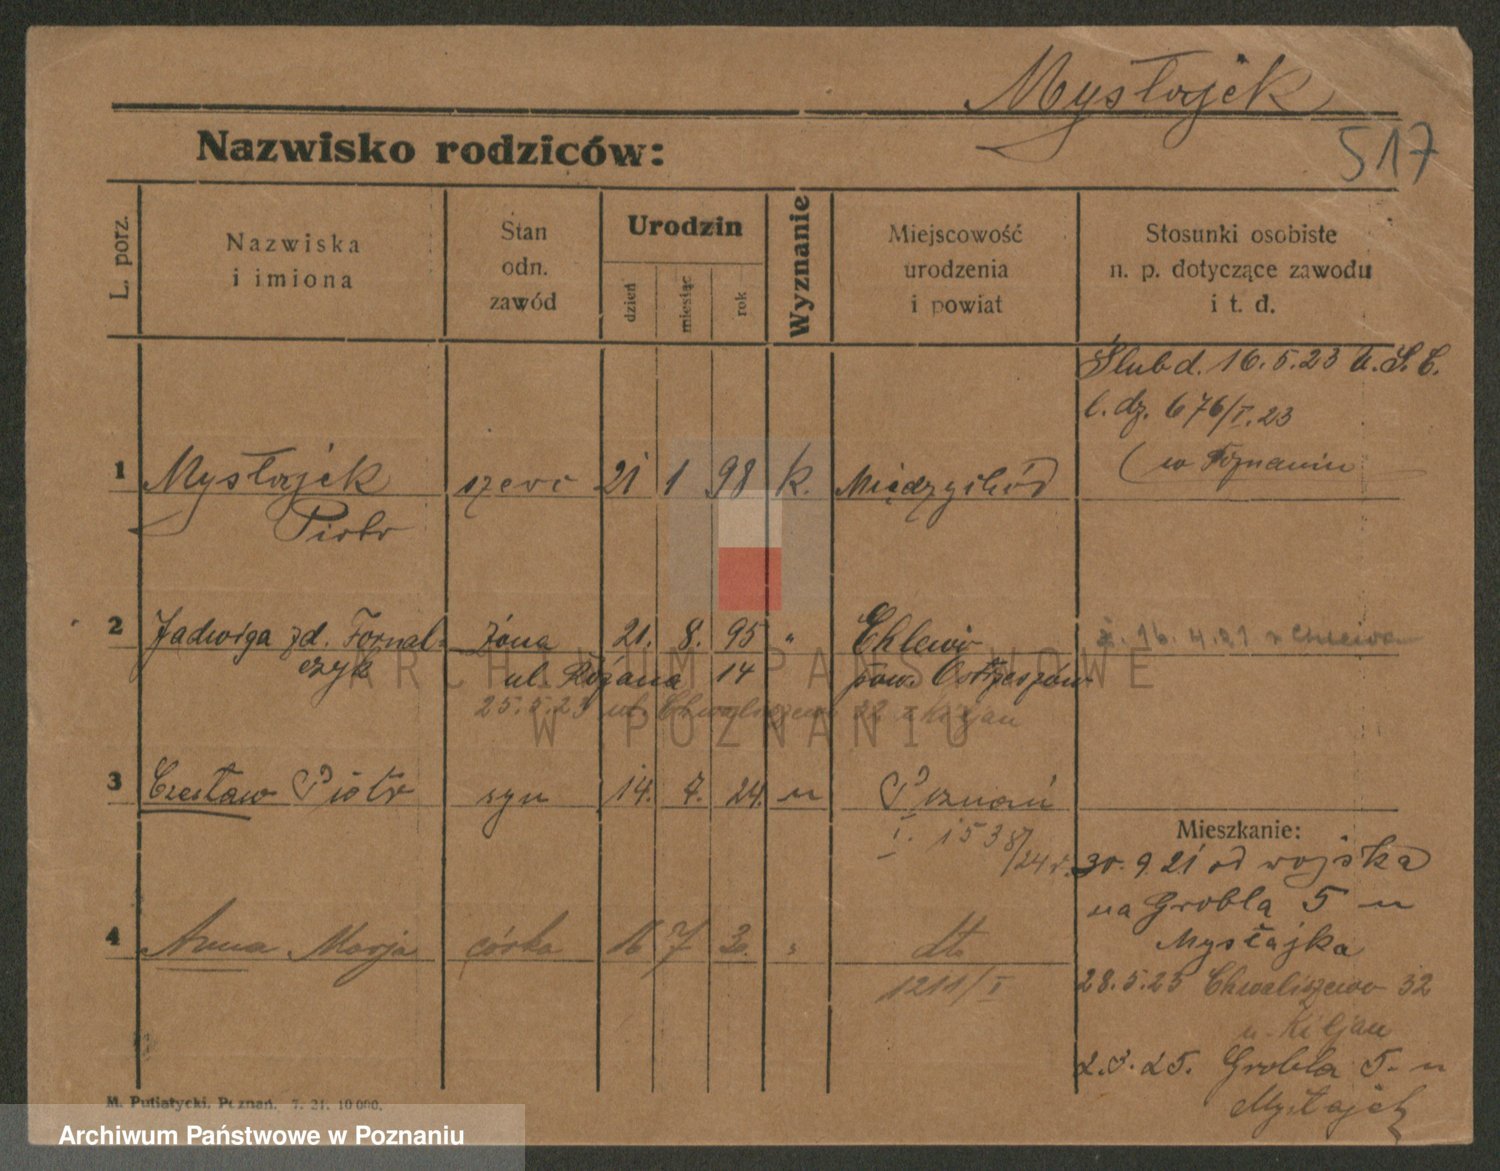 Mysłajek
517
Nazwisko rodziców:
L. porz.
Nazwiska
i imiona
Stan
odn.
zawód
Urodzin
dzień
miesiąc
rok
Wyznanie
Miejscowość
urodzenia
i powiat
Stosunki osobiste
n. p. dotyczące zawodu
i t. d.
Ślub d. 16.5.23 U.S.C.
l. dz. 676/I.23
(w Poznaniu
1 Mysłajek szewc 21 1 98 k. Międzychód
Piotr
2 Jadwiga zd. Fornal- żona 21. 8. 95 " Chlewo
czyk ul. Różana 14 pow. Ostrzeszów
ż. 16.4.21 z Chlewa
25.5.23 ul. Chwaliszewo 32 Kiljan
3 Czesław Piotr syn 14. 7. 24. " Poznań
I. 1538/24 r.
Mieszkanie:
30.9.21 od wojska
na Grobla 5 u
Mysłajka
4 Anna Marja córka 16 7 30. " dto
1211/I
28.5.23 Chwaliszewo 32
u. Kiljan
2.3.25. Grobla 5. u
Mysłajek
M. Putiatycki, Poznań. 7. 21. 10 000.
ARCHIWUM PAŃSTWOWE
W POZNANIU
Archiwum Państwowe w Poznaniu